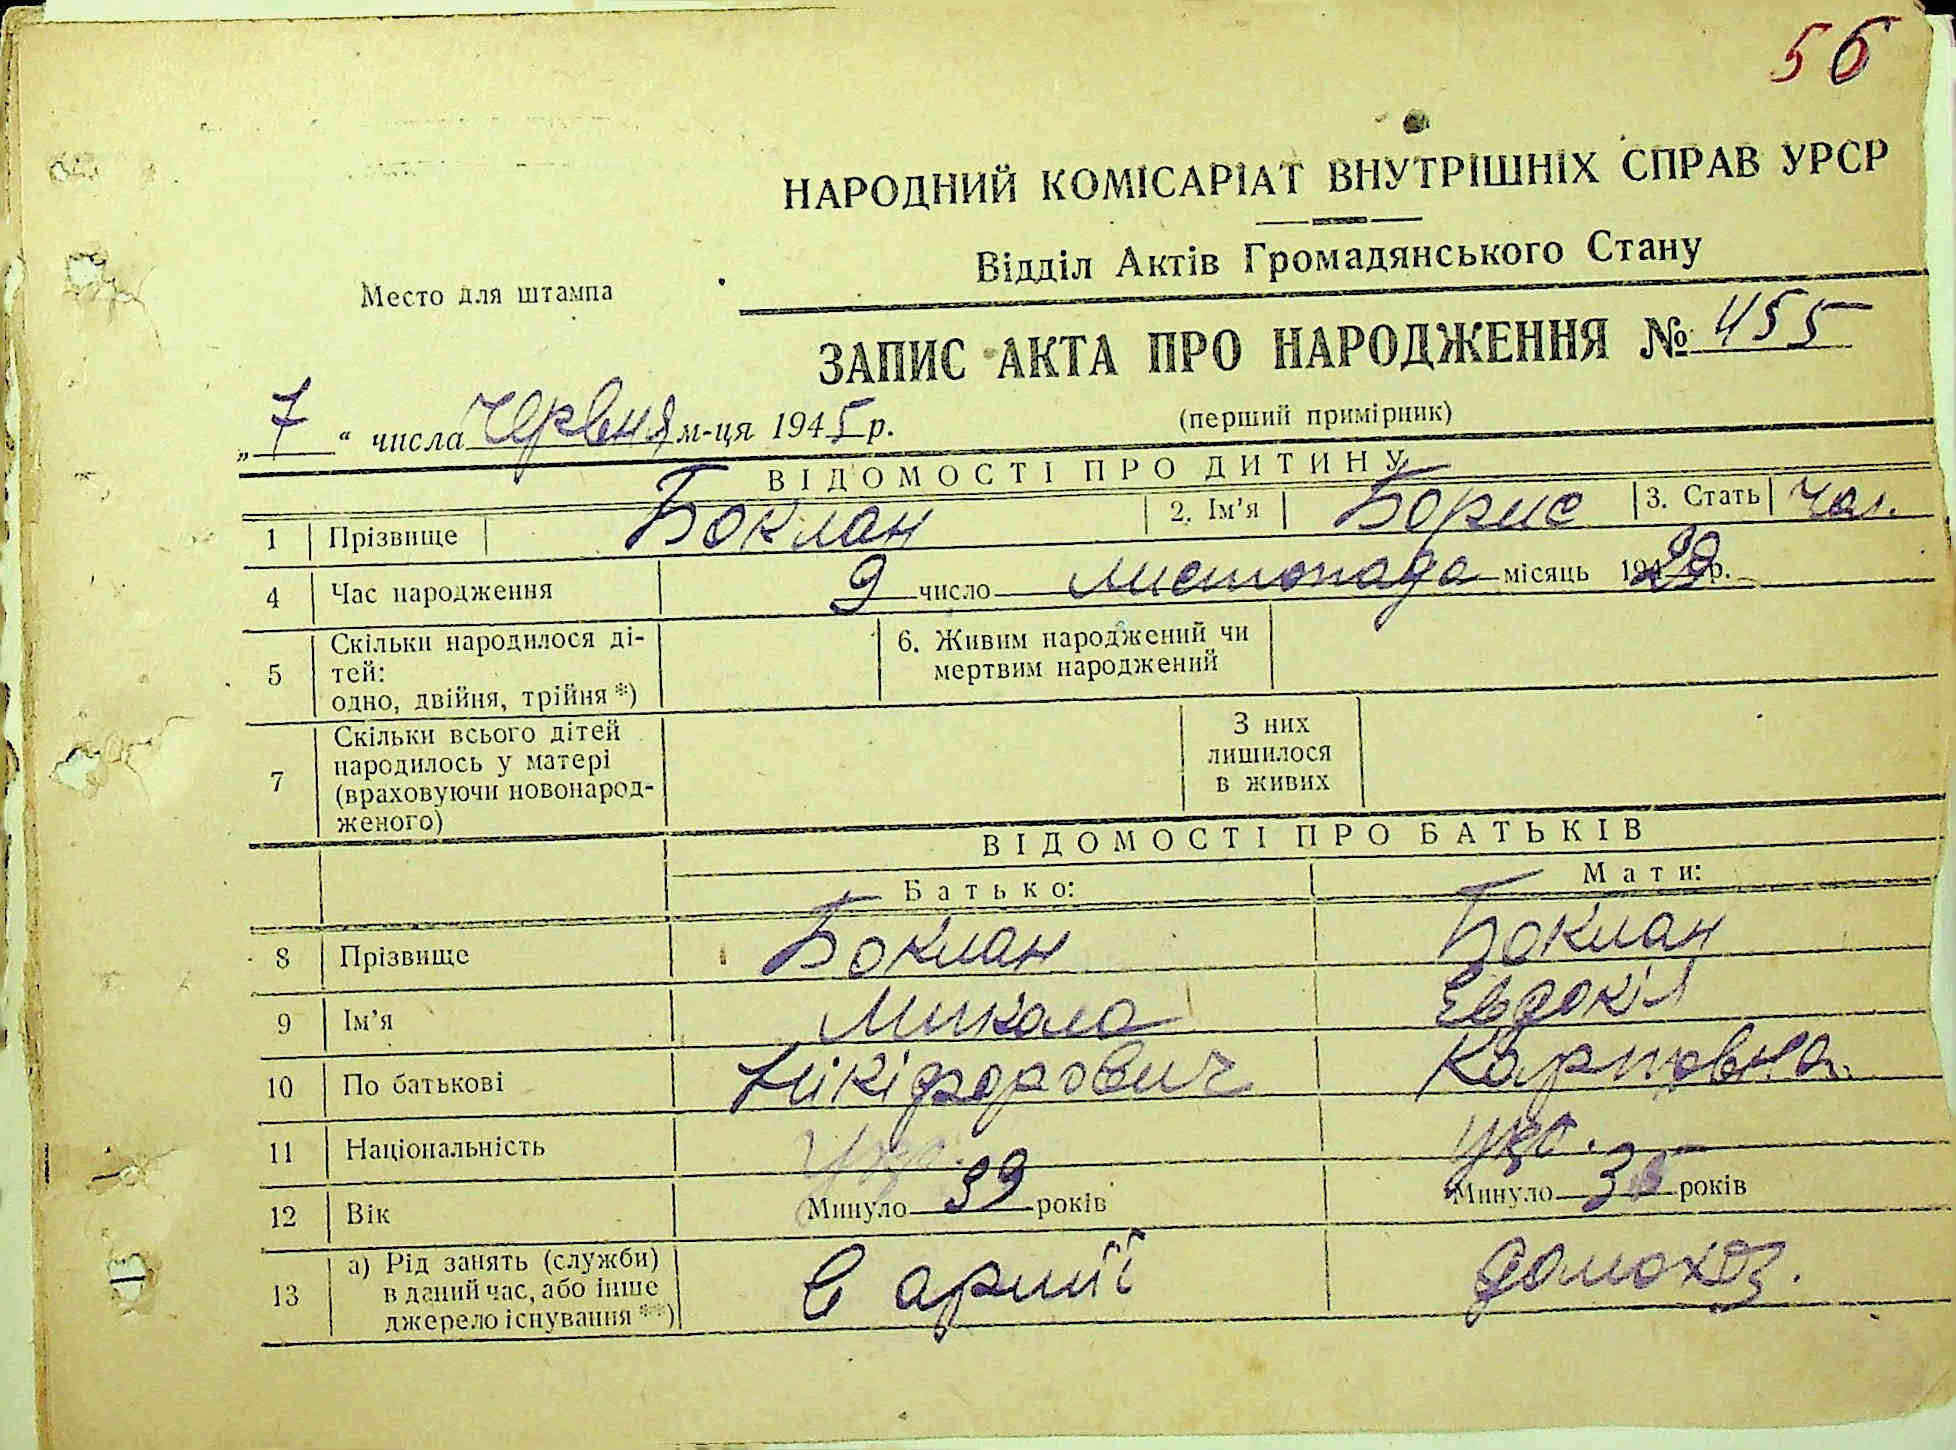 56
НАРОДНИЙ КОМІСАРІАТ ВНУТРІШНІХ СПРАВ УРСР
Відділ Актів Громадянського Стану
Место для штампа
ЗАПИС АКТА ПРО НАРОДЖЕННЯ № 455
„ 7 “ числа Червня м-ця 1945 р. (перший примірник)
ВІДОМОСТІ ПРО ДИТИНУ
1 Прізвище Боклан 2. Ім’я Борис 3. Стать чол.
4 Час народження 9 число листопада місяць 1929 р.
5 Скільки народилося ді-
тей:
одно, двійня, трійня *)
6. Живим народжений чи
мертвим народжений
7 Скільки всього дітей
народилось у матері
(враховуючи новонарод-
женого)
З них
лишилося
в живих
ВІДОМОСТІ ПРО БАТЬКІВ
Батько: Мати:
8 Прізвище Боклан Боклан
9 Ім’я Микола Евдокія
10 По батькові Нікіфорович Карповна
11 Національність Укр. укр.
12 Вік Минуло 39 років Минуло 35 років
13 а) Рід занять (служби)
в даний час, або інше
джерело існування **)
в армії домохоз.